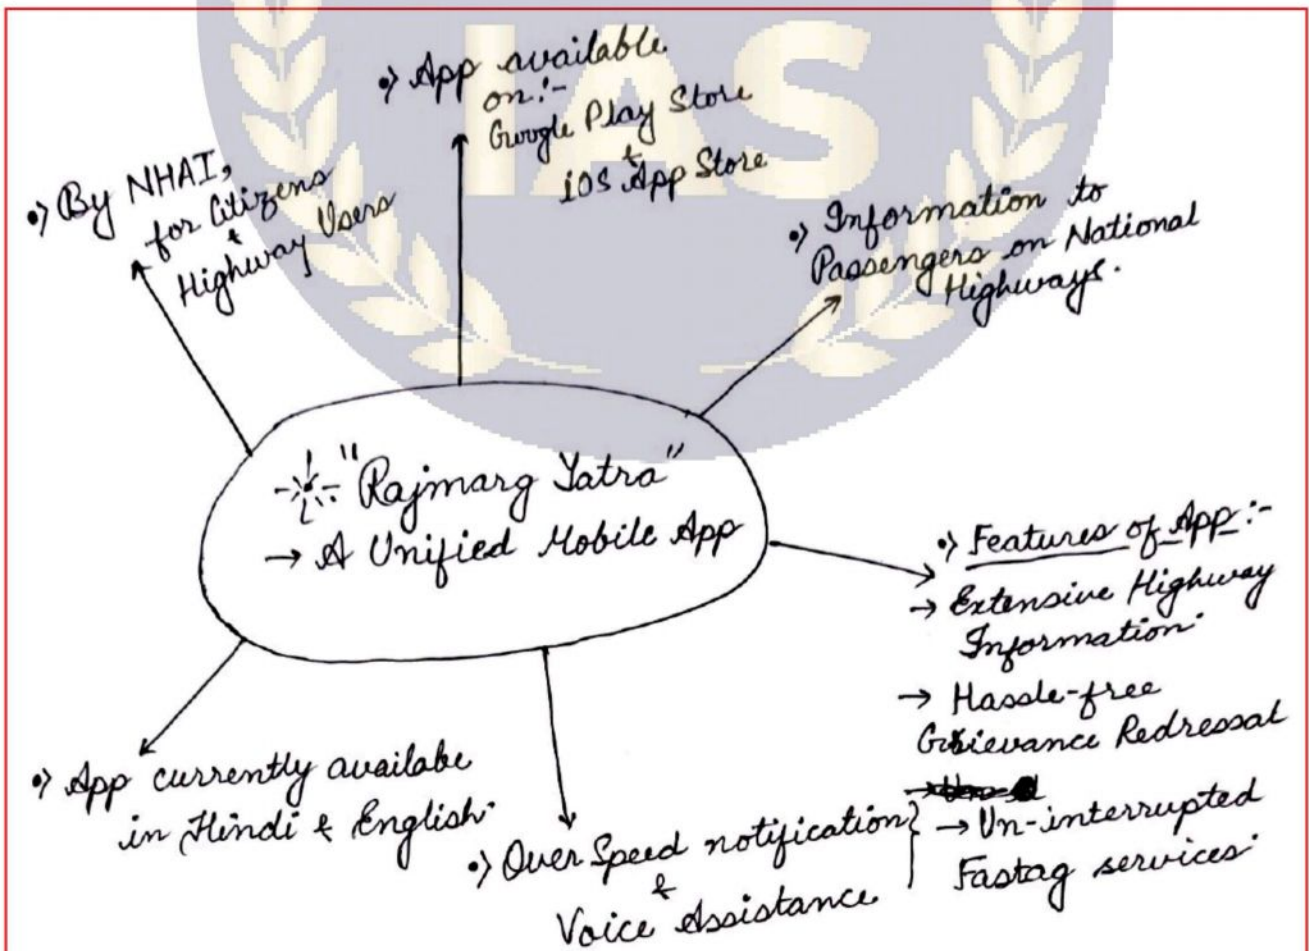 IAS
•) App available
on:-
Google Play Store
+
iOS App Store
•) By NHAI,
for Citizens
+
Highway Users
•) Information to
Passengers on National
Highways.
"Rajmarg Yatra"
→ A Unified Mobile App
•) Features of App:-
→ Extensive Highway
Information.
→ Hassle-free
Grievance Redressal
→ Un-interrupted
Fastag services.
•) App currently availabe
in Hindi & English.
•) Over Speed notification
&
Voice Assistance